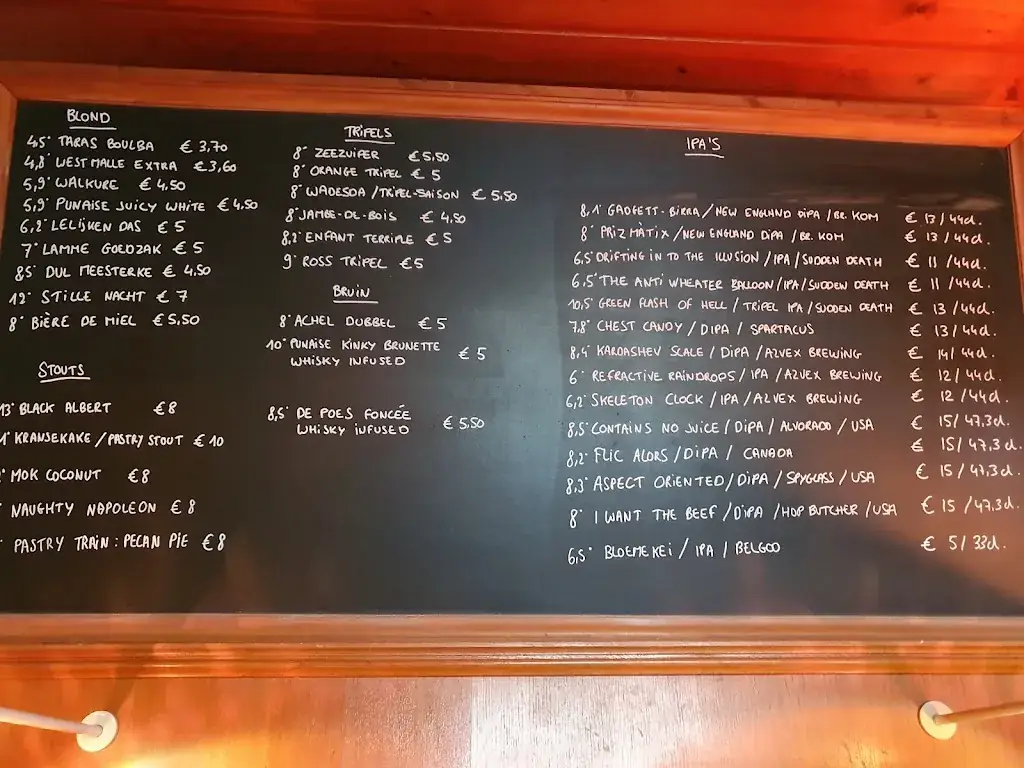 BLOND
4,5° TARAS BOULBA € 3,70
4,8° WESTMALLE EXTRA € 3,60
5,9° WALKURE € 4,50
5,9° PUNAISE JUICY WHITE € 4,50
6,2° LELIJKEN DAS € 5
7° LAMME GOEDZAK € 5
8,5° DUL MEESTERKE € 4,50
12° STILLE NACHT € 7
8° BIÈRE DE MIEL € 5,50
STOUTS
13° BLACK ALBERT € 8
1° KRANSEKAKE / PASTRY STOUT € 10
° MOK COCONUT € 8
° NAUGHTY NAPOLEON € 8
° PASTRY TRAIN : PECAN PIE € 8
TRIPELS
8° ZEEZUIPER € 5,50
8° ORANGE TRIPEL € 5
8° WADESDA / TRIPEL-SAISON € 5,50
8° JAMBE-DE-BOIS € 4,50
8,2° ENFANT TERRIPLE € 5
9° ROSS TRIPEL € 5
BRUIN
8° ACHEL DUBBEL € 5
10° PUNAISE KINKY BRUNETTE
WHISKY INFUSED € 5
8,5° DE POES FONCÉE
WHISKY INFUSED € 5,50
IPA'S
8,1° GADGETT-BIRRA / NEW ENGLAND DIPA / BR. KOM € 13 / 44cl.
8° PRIZMATIX / NEW ENGLAND DIPA / BR. KOM € 13 / 44cl.
6,5° DRIFTING IN TO THE ILLUSION / IPA / SUDDEN DEATH € 11 / 44cl.
6,5° THE ANTI WHEATER BALLOON / IPA / SUDDEN DEATH € 11 / 44cl.
10,5° GREEN FLASH OF HELL / TRIPEL IPA / SUDDEN DEATH € 13 / 44cl.
7,8° CHEST CANDY / DIPA / SPARTACUS € 13 / 44cl.
8,4° KARDASHEV SCALE / DIPA / AZVEX BREWING € 14 / 44cl.
6° REFRACTIVE RAINDROPS / IPA / AZVEX BREWING € 12 / 44cl.
6,2° SKELETON CLOCK / IPA / AZVEX BREWING € 12 / 44cl.
8,5° CONTAINS NO JUICE / DIPA / ALVORADO / USA € 15 / 47,3cl.
8,2° FLIC ALORS / DIPA / CANADA € 15 / 47,3cl.
8,3° ASPECT ORIENTED / DIPA / SPYGLASS / USA € 15 / 47,3cl.
8° I WANT THE BEEF / DIPA / HOP BUTCHER / USA € 15 / 47,3cl.
6,5° BLOEMEKEI / IPA / BELGOO € 5 / 33cl.